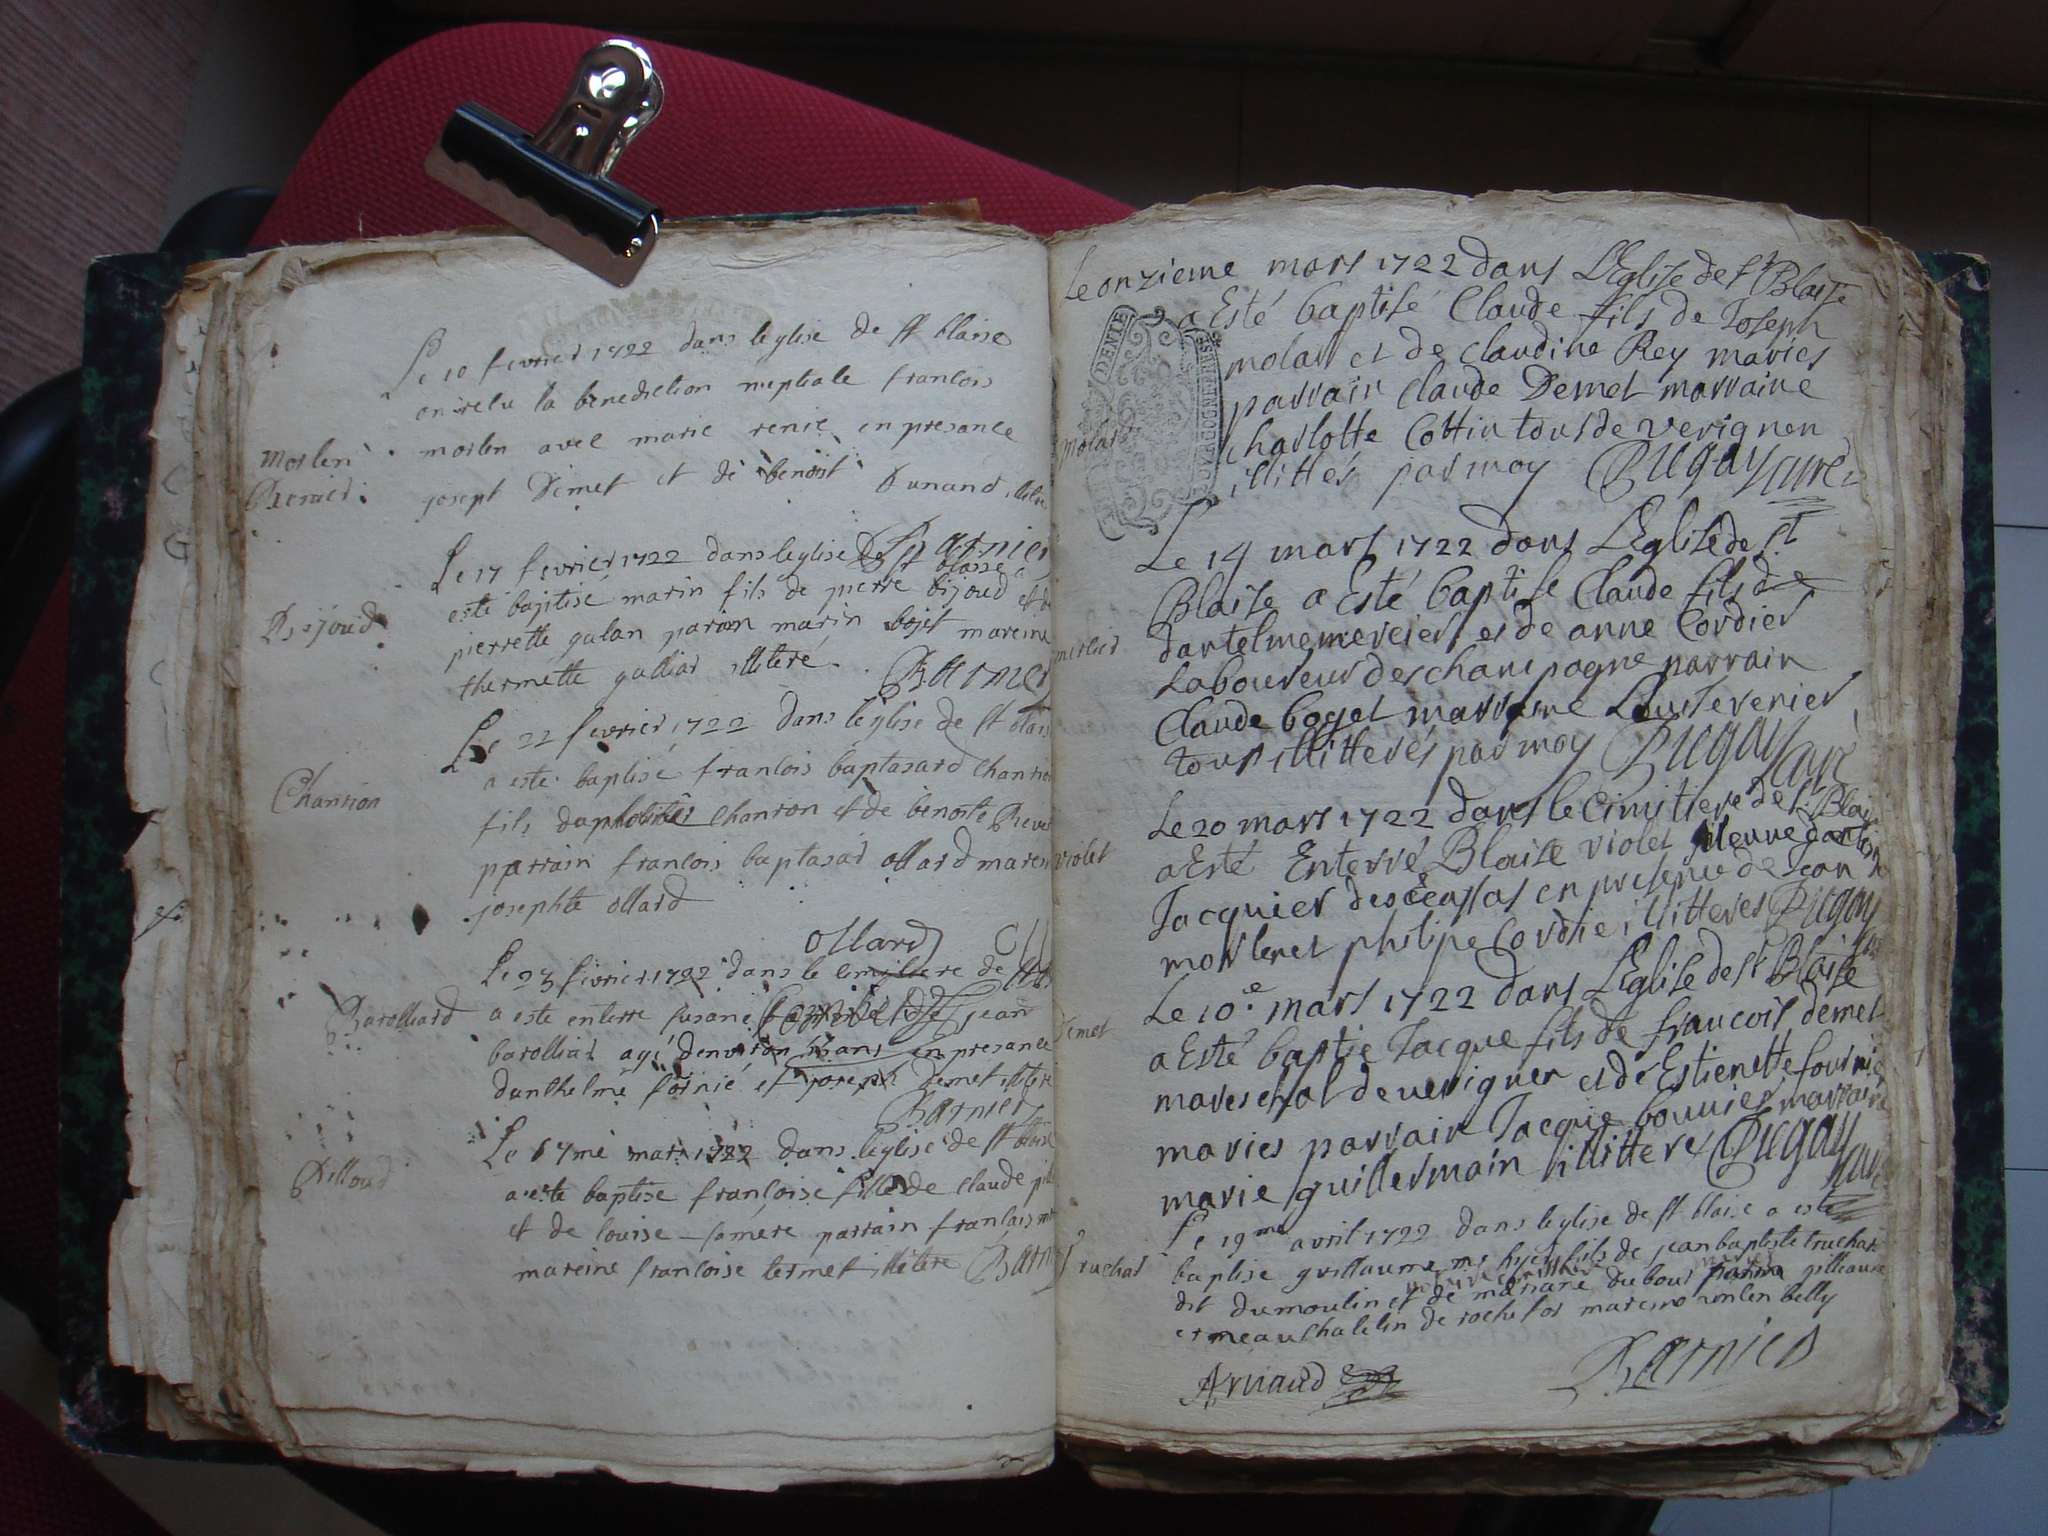 Le 10 fevrier 1722 dans leglise de st blaise
on recu la benediction nuptiale francois
morlen avec marie renie en presance
josept Demet et de benoist Dunand
Morlen
Renier
Barnier
Le 17 fevrier 1722 dans leglise de st blaise a
esté baptisé marin fils de pierre bijoud et de
pierrette galan parain marin bojet mareine
thermette galliar illiteré
Bijoud
Barnier
Le 22 fevrier 1722 dans leglise de st blais
a esté baptisé francois baptasard chanron
fils chanron et de benoite
parrain francois baptasar ollard maren
josephte ollard
Chanron
ollard
Le 23 fevrier 1722 dans le cimistiere de st
a este enterre susane jean
barolliar agé denviron ans en presance
danthelme fornié et joseph Demet illitere
Barolliard
Barnier
Le mars 1722 dans leglise de st blaise
a este baptise françoise fille de claude
et de louise parrain francois
mareine francoise termet illitere Barnier
Pilloud
Le onzieme mars 1722 dans LEglise de st Blaise
a Esté baptisé Claude fils de Joseph
molar et de claudine Rey maries
parrain Claude Demet marraine
charlotte Cottin tous de verignen
illittés par moy Dugay curé
molar
DENIE
Le 14 mars 1722 dans LEglise de st
Blaise a Esté baptisé Claude fils de
dantelme mercier et de anne Cordier
Laboureur de champagne parrain
Claude boget marraine Louise renier
tous illitterés par moy Dugay curé
mercier
Le 20 mars 1722 dans le Cimitiere de st Blaise
a Esté Enterré Blaise violet veuve dantoin
Jacquier en presence de Jean
morlen et philipe Cordie illitteres Dugay
violet
Le 10e mars 1722 dans LEglise de st Blaise
a Esté baptié Jacque fils de francois demet
mareschal de verignen et de Estienette fournie
maries parrain Jacque bouvier marraine
marie guillermain illittere Dugay curé
Demet
Le 19me avril 1722 dans leglise de st blaise a este
baptise guillaume fils de jean baptiste truchar
dit dumoulin et de mariane dubour
de rochefor belly
truchar
Arnaud
Barnier